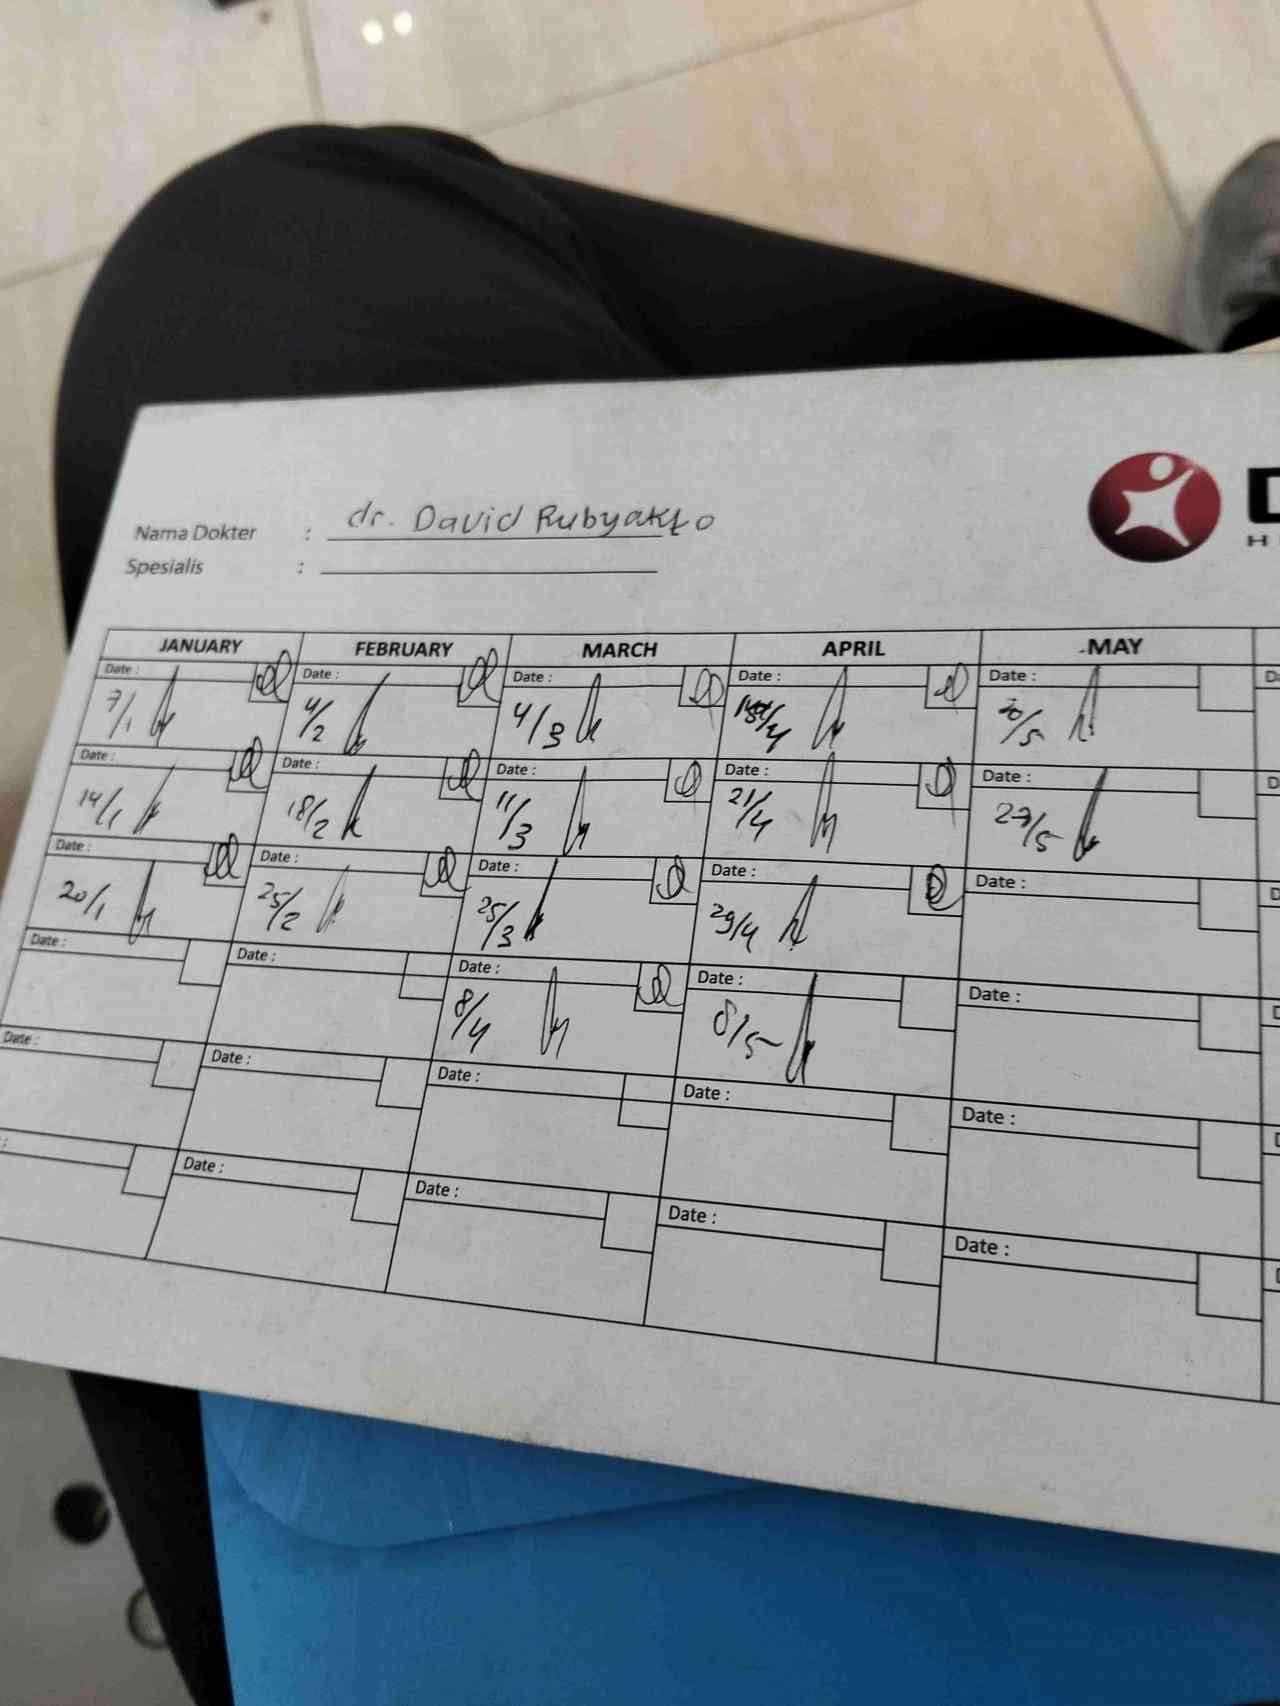 Nama Dokter : dr. David Rubyakto
Spesialis :
JANUARY FEBRUARY MARCH APRIL MAY
Date : Date : Date : Date : Date :
7/1 4/2 4/3 20/5
Date : Date : Date : Date : Date :
14/1 18/2 11/3 21/4 27/5
Date : Date : Date : Date : Date :
20/1 25/2 25/3 29/4
Date : Date : Date : Date : Date :
8/4 8/5
Date : Date : Date : Date : Date :
Date : Date : Date : Date :